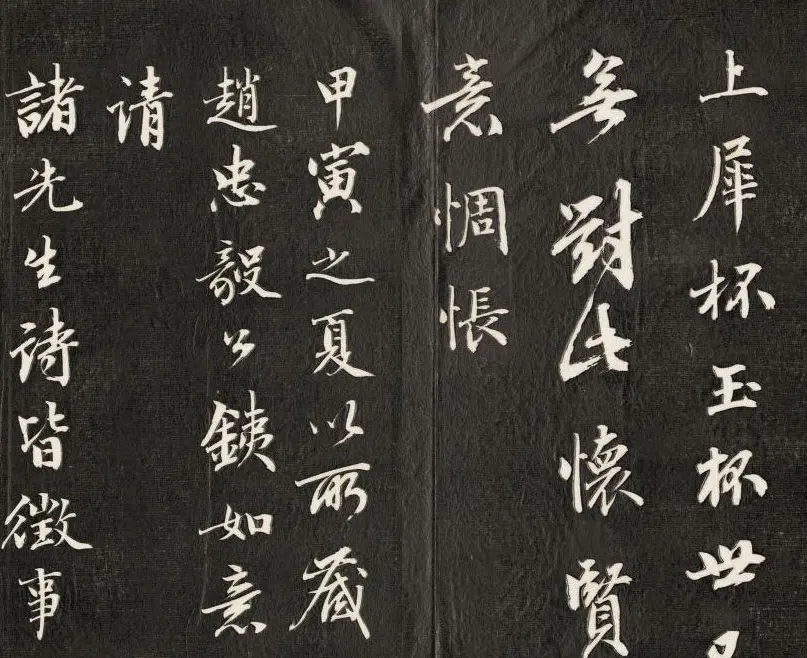 上犀杯玉杯世
無對此懷賢
意惆悵
甲寅之夏以所藏
趙忠毅公銕如意
请
諸先生詩皆徵事